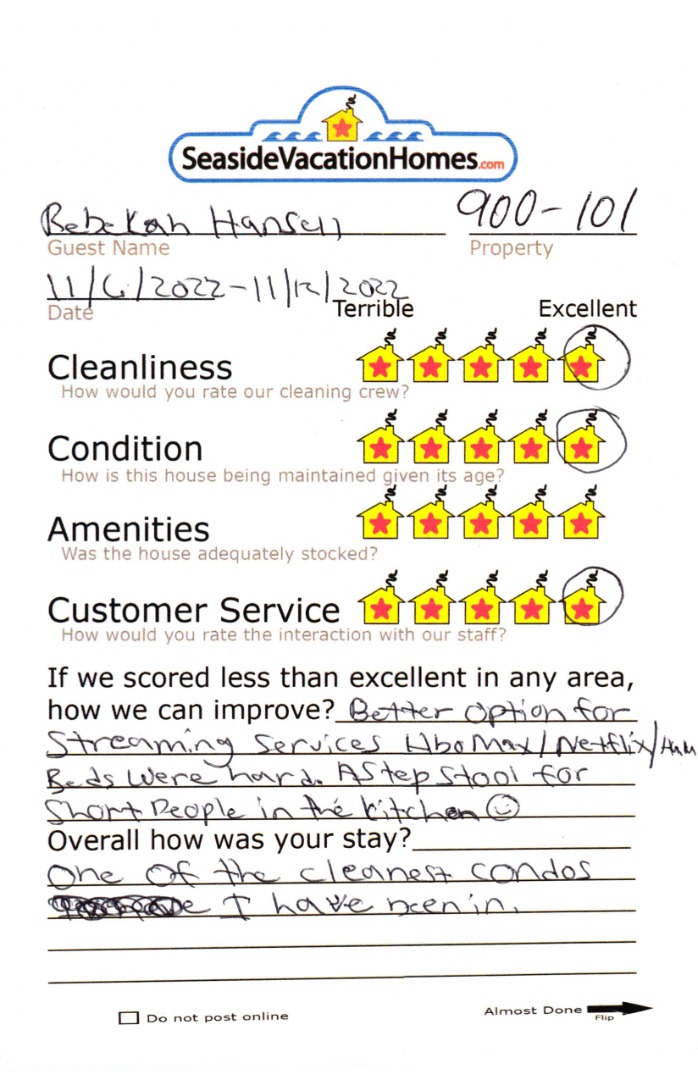 SeasideVacationHomes.com
Rebekah Hansen 900-101
Guest Name Property
11/6/2022-11/12/2022
Date Terrible Excellent
Cleanliness
How would you rate our cleaning crew?
Condition
How is this house being maintained given its age?
Amenities
Was the house adequately stocked?
Customer Service
How would you rate the interaction with our staff?
If we scored less than excellent in any area,
how we can improve? Better option for
Streaming Services Hbo Max/Netflix/
Beds were hard. A step stool for
Short People in the kitchen
Overall how was your stay?
One of the cleanest condos
I have been in.
Do not post online Almost Done
Flip